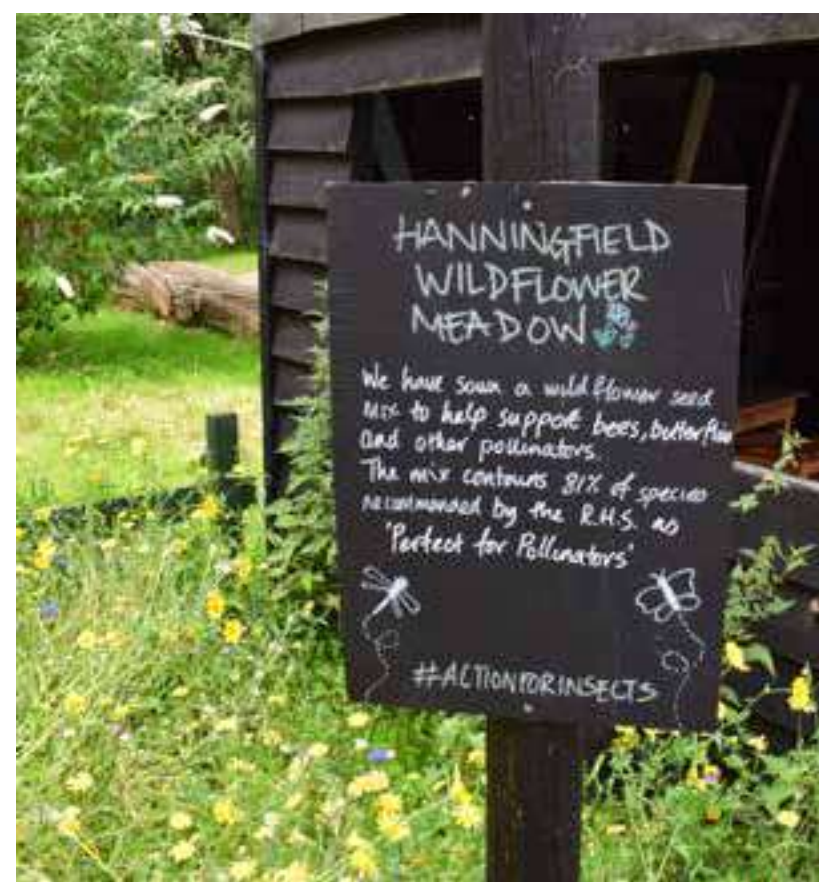 HANNINGFIELD
WILDFLOWER
MEADOW
We have sown a wildflower seed
mix to help support bees, butterflies
and other pollinators
The mix contains 81% of species
recommended by the R.H.S. as
'Perfect for Pollinators'
#ACTIONFORINSECTS